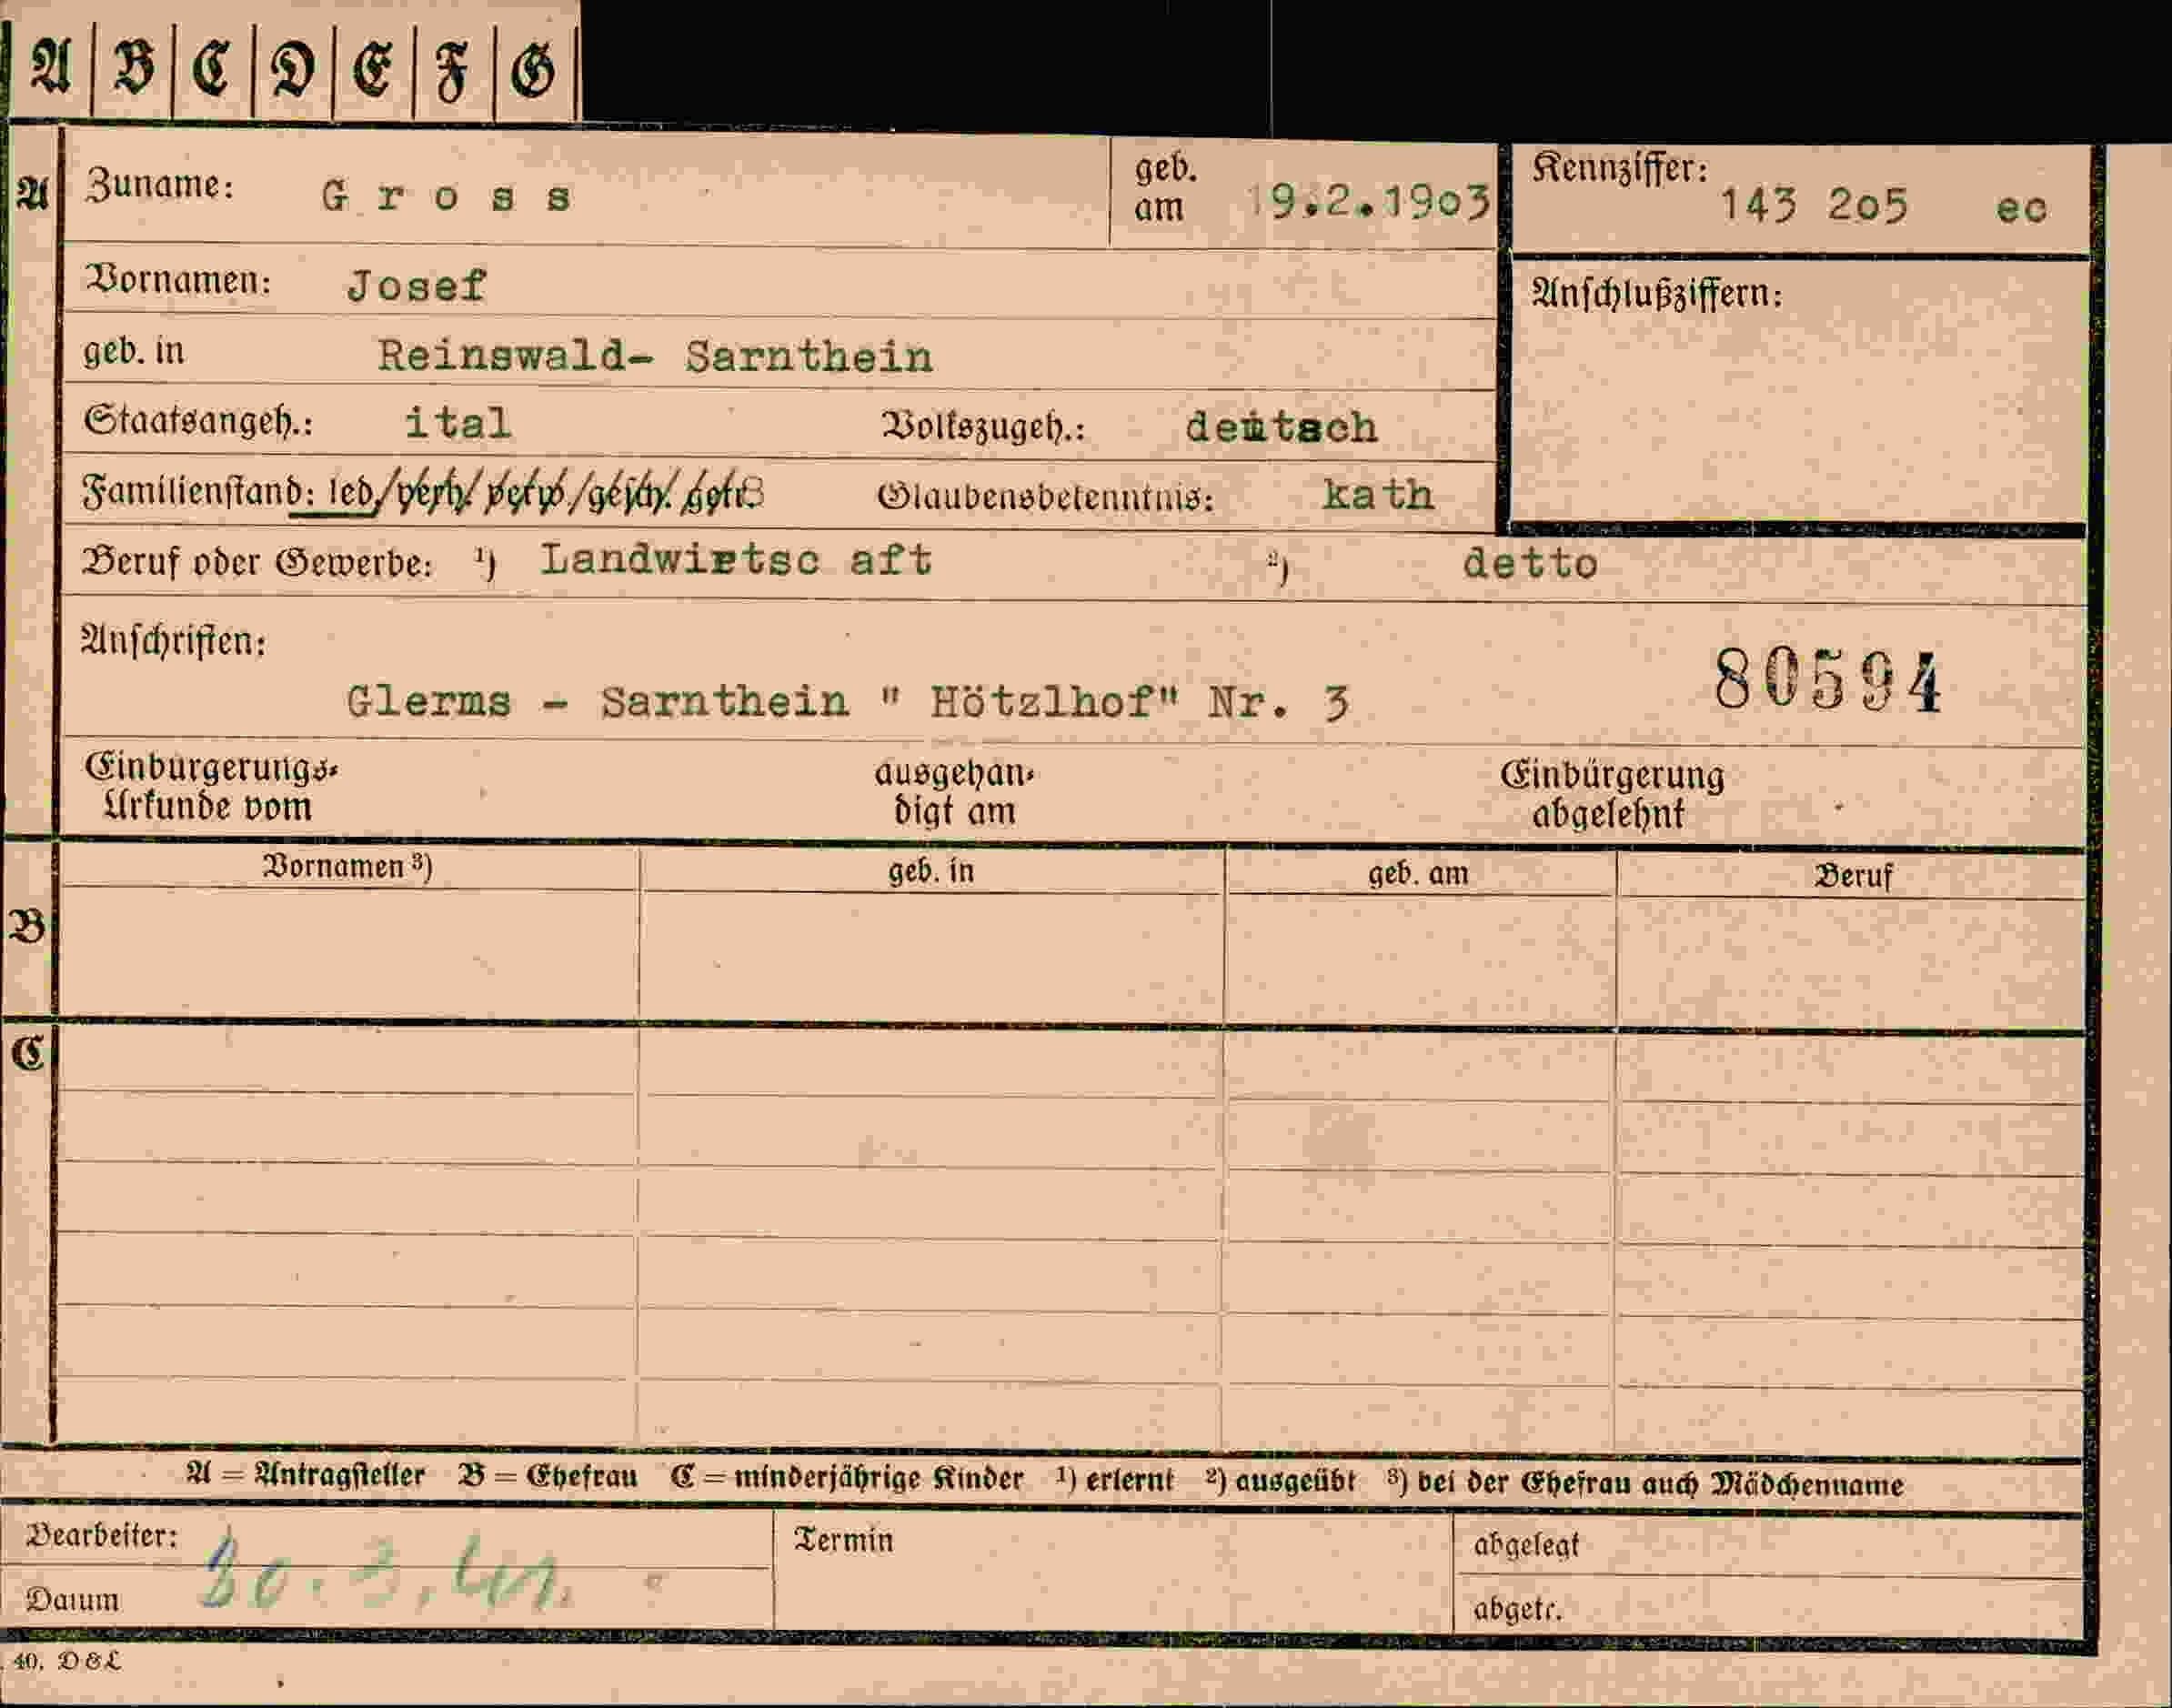 A B C D E F G
A Zuname: Gross geb. am 19.2.1903 Kennziffer: 143 2o5 ec
Vornamen: Josef Anschlußziffern:
geb. in Reinswald- Sarnthein
Staatsangeh.: ital Volkszugeh.: deutsch
Familienstand: led/verh/verw/gesch/getr Glaubensbekenntnis: kath
Beruf oder Gewerbe: ¹) Landwirtsc aft ²) detto
Anschriften: 80594
Glerms - Sarnthein " Hötzlhof" Nr. 3
Einbürgerungs- ausgehän- Einbürgerung
Urkunde vom digt am abgelehnt
Vornamen ³) geb. in geb. am Beruf
B
C
A = Antragsteller B = Ehefrau C = minderjährige Kinder ¹) erlernt ²) ausgeübt ³) bei der Ehefrau auch Mädchenname
Bearbeiter: Termin abgelegt
Datum abgetr.
40. D & L